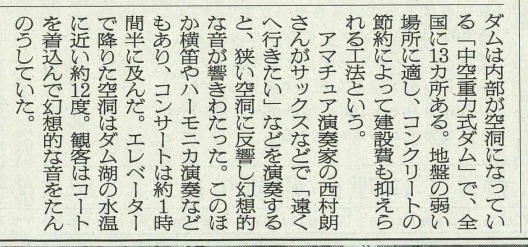 ダムは内部が空洞になってい
る「中空重力式ダム」で、全
国に13カ所ある。地盤の弱い
場所に適し、コンクリートの
節約によって建設費も抑えら
れる工法という。
アマチュア演奏家の西村朗
さんがサックスなどで「遠く
へ行きたい」などを演奏する
と、狭い空洞に反響し幻想的
な音が響きわたった。このほ
か横笛やハーモニカ演奏など
もあり、コンサートは約1時
間半に及んだ。エレベーター
で降りた空洞はダム湖の水温
に近い約12度。観客はコート
を着込んで幻想的な音をたん
のうしていた。